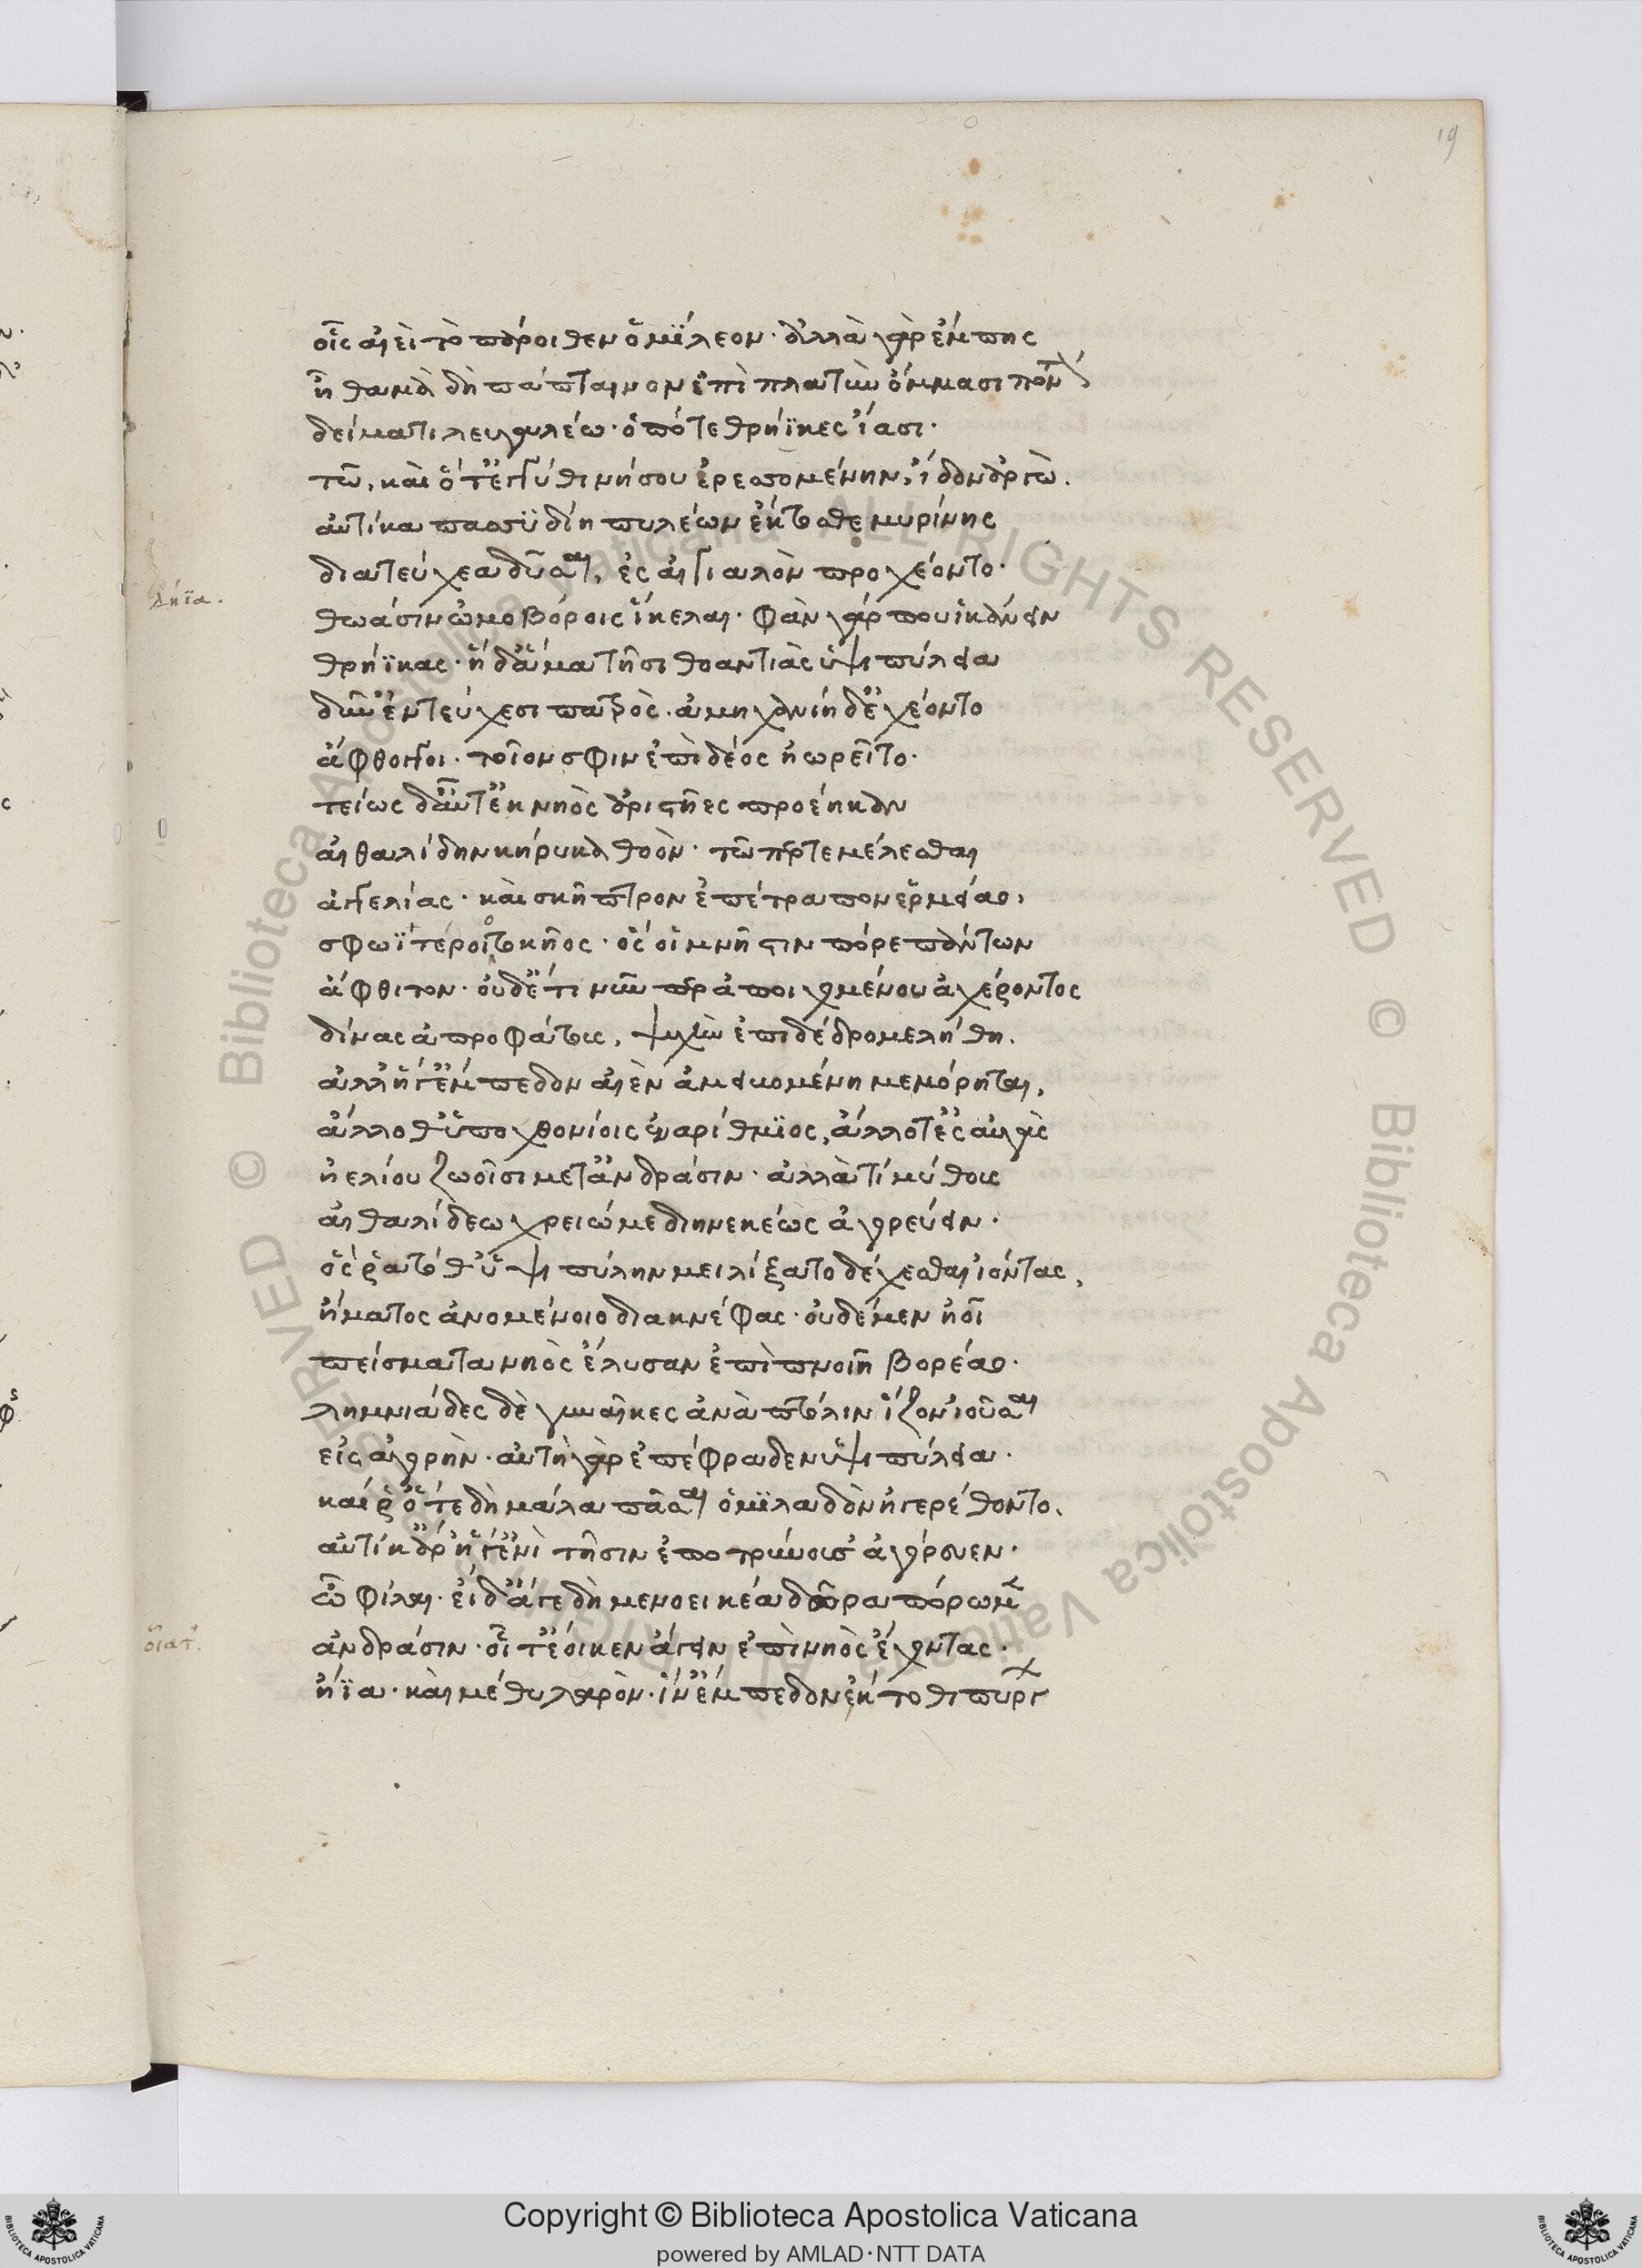 19
οἷς αἰεὶ τὸ πάροιθεν ὁμίλεον· ἀλλὰ γὰρ ἔμπης
ἦ θαμὰ δὴ πάπταινον ἐπὶ πλατὺν ὄμμασι πόντ
δείματι λευγαλέω· ὁπότε θρήϊκες ἴασι·
τῶ, καὶ ὅτ' ἐγγύθι νήσου ἐρεσσομένην, ἴδον ἀργὼ.
αὐτίκα πασσυδίη πυλέων ἔκτοσθε μυρίνης
δήϊα.
δηϊα τεύχεα δῦσαι, ἐς αἰγιαλὸν προχέοντο·
θυάσιν ὠμοβόροις ἴκελαι· φὰν γάρ που ἱκάνειν
θρήϊκας· ἡ δ' ἅμα τῆσι θοαντιὰς ὑψιπύλεια
δῦν' ἐν τεύχεσι πατρὸς. ἀμηχανίη δ' ἐχέοντο
ἄφθογγοι· τοῖον σφιν ἐπὶ δέος ἠωρεῖτο·
τείως δ' αὖτ' ἐκ νηὸς ἀριστῆες προέηκαν
αἰθαλίδην κήρυκα θοὸν· τῶ πέρ τε μέλεσθαι
ἀγγελίας· καὶ σκῆπτρον ἐπέτραπον ἑρμείαο,
σφωϊτέροιο τοκῆος· ὅς οἱ μνῆστιν πόρε πάντων
ἄφθιτον· οὐδ' ἔτι νῦν περ ἀποιχομένου ἀχέροντος
δίνας ἀπροφάτους, ψυχὴν ἐπιδέδρομε λήθη.
ἀλλ' ἥγ' ἔμπεδον αἰὲν ἀμειβομένη μεμόρηται,
ἄλλοθ' ὑποχθονίοις ἐναρίθμιος, ἄλλοτ' ἐς αὐγὰς
ἠελίου ζωοῖσι μετ' ἀνδράσιν· ἀλλὰ τί μύθους
αἰθαλίδεω χρειώ με διηνεκέως ἀγορεύειν·
ὅς ῥα τόθ' ὑψιπύλην μειλίξατο δέχεσθαι ἰόντας,
ἤματος ἀνομένοιο διὰ κνέφας· οὐδὲ μὲν ἠοῖ
πείσματα νηὸς ἔλυσαν ἐπὶ πνοιῆ βορέαο·
λημνιάδες δὲ γυναῖκες ἀνὰ πτόλιν ἷζον ἰοῦσαι
εἰς ἀγορὴν· αὐτὴ γὰρ ἐπέφραδεν ὑψιπύλεια·
καί ῥ' ὅτε δὴ μάλα πᾶσαι ὁμιλαδὸν ἠγερέθοντο,
αὐτίκ' ἄρ' ἥγ' ἐνὶ τῆσιν ἐποτρύνουσ' ἀγόρευεν·
ὦ φίλαι· εἰ δ' ἄγε δὴ μενοεικέα δῶρα πόρωμεν
οἷατ.
ἀνδράσιν· οἷά τ' ἔοικεν ἄγειν ἐπὶ νηὸς ἔχοντας·
ἤϊα· καὶ μέθυ λαρὸν· ἵν' ἔμπεδον ἔκτοθι πύργ
Copyright © Biblioteca Apostolica Vaticana
powered by AMLAD·NTT DATA